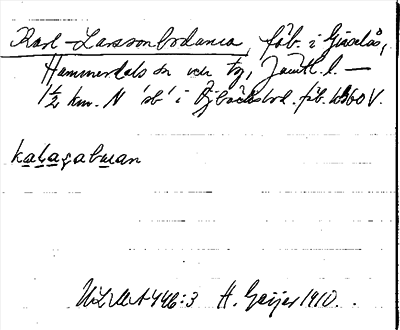 Karl-Larssonbodarna, fäb. i Gisselås,
Hammerdals sn och tg, Jämtl. l. —
1½ km. N 'sb' i Öjbäcksbod. fäb.
kalaçabuan
ULMA 446:3 H. Geijer 1910.